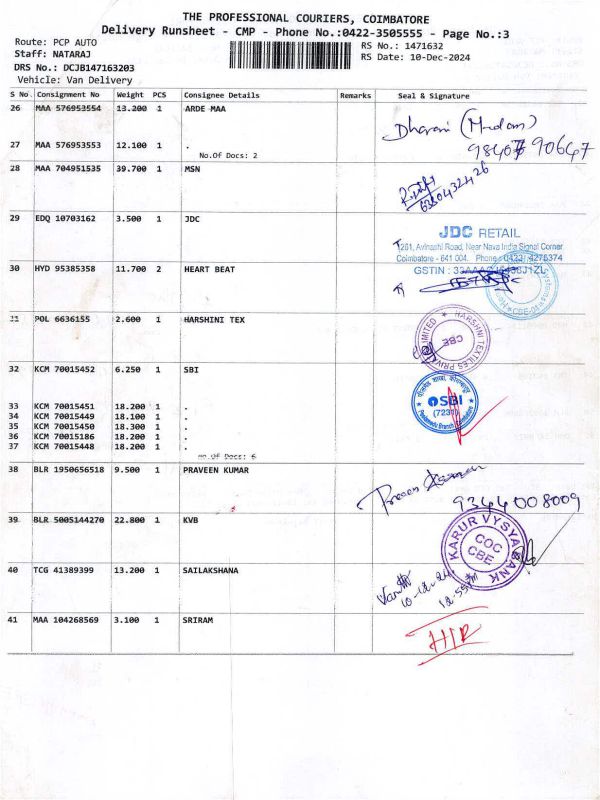 THE PROFESSIONAL COURIERS, COIMBATORE
Delivery Runsheet - CMP - Phone No.:0422-3505555 - Page No.:3
Route: PCP AUTO
Staff: NATARAJ
DRS No.: DCJB147163203
Vehicle: Van Delivery
RS No.: 1471632
RS Date: 10-Dec-2024
S No Consignment No Weight PCS Consignee Details Remarks Seal & Signature
26 MAA 576953554 13.200 1 ARDE MAA
Dharani (Madam)
27 MAA 576953553 12.100 1 .
98407 90647
No.Of Docs: 2
28 MAA 704951535 39.700 1 MSN
29 EDQ 10703162 3.500 1 JDC
JDC RETAIL
1261, Avinashi Road, Near Nava India Signal Corner
Coimbatore - 641 004. Phone: 0422-4275374
GSTIN :
30 HYD 95385358 11.700 2 HEART BEAT
31 POL 6636155 2.600 1 HARSHINI TEX
HARSHNI TEXTILES PRIVATE LIMITED
CBE
32 KCM 70015452 6.250 1 SBI
SBI
(7231)
33 KCM 70015451 18.200 1 .
34 KCM 70015449 18.100 1 .
35 KCM 70015450 18.300 1 .
36 KCM 70015186 18.200 1 .
37 KCM 70015448 18.200 1 .
no of Docs: 6
38 BLR 1950656518 9.500 1 PRAVEEN KUMAR
9344008009
39 BLR 5005144270 22.800 1 KVB
KARUR VYSYA BANK
COC
CBE
40 TCG 41389399 13.200 1 SAILAKSHANA
10-12-24
12-55PM
41 MAA 104268569 3.100 1 SRIRAM